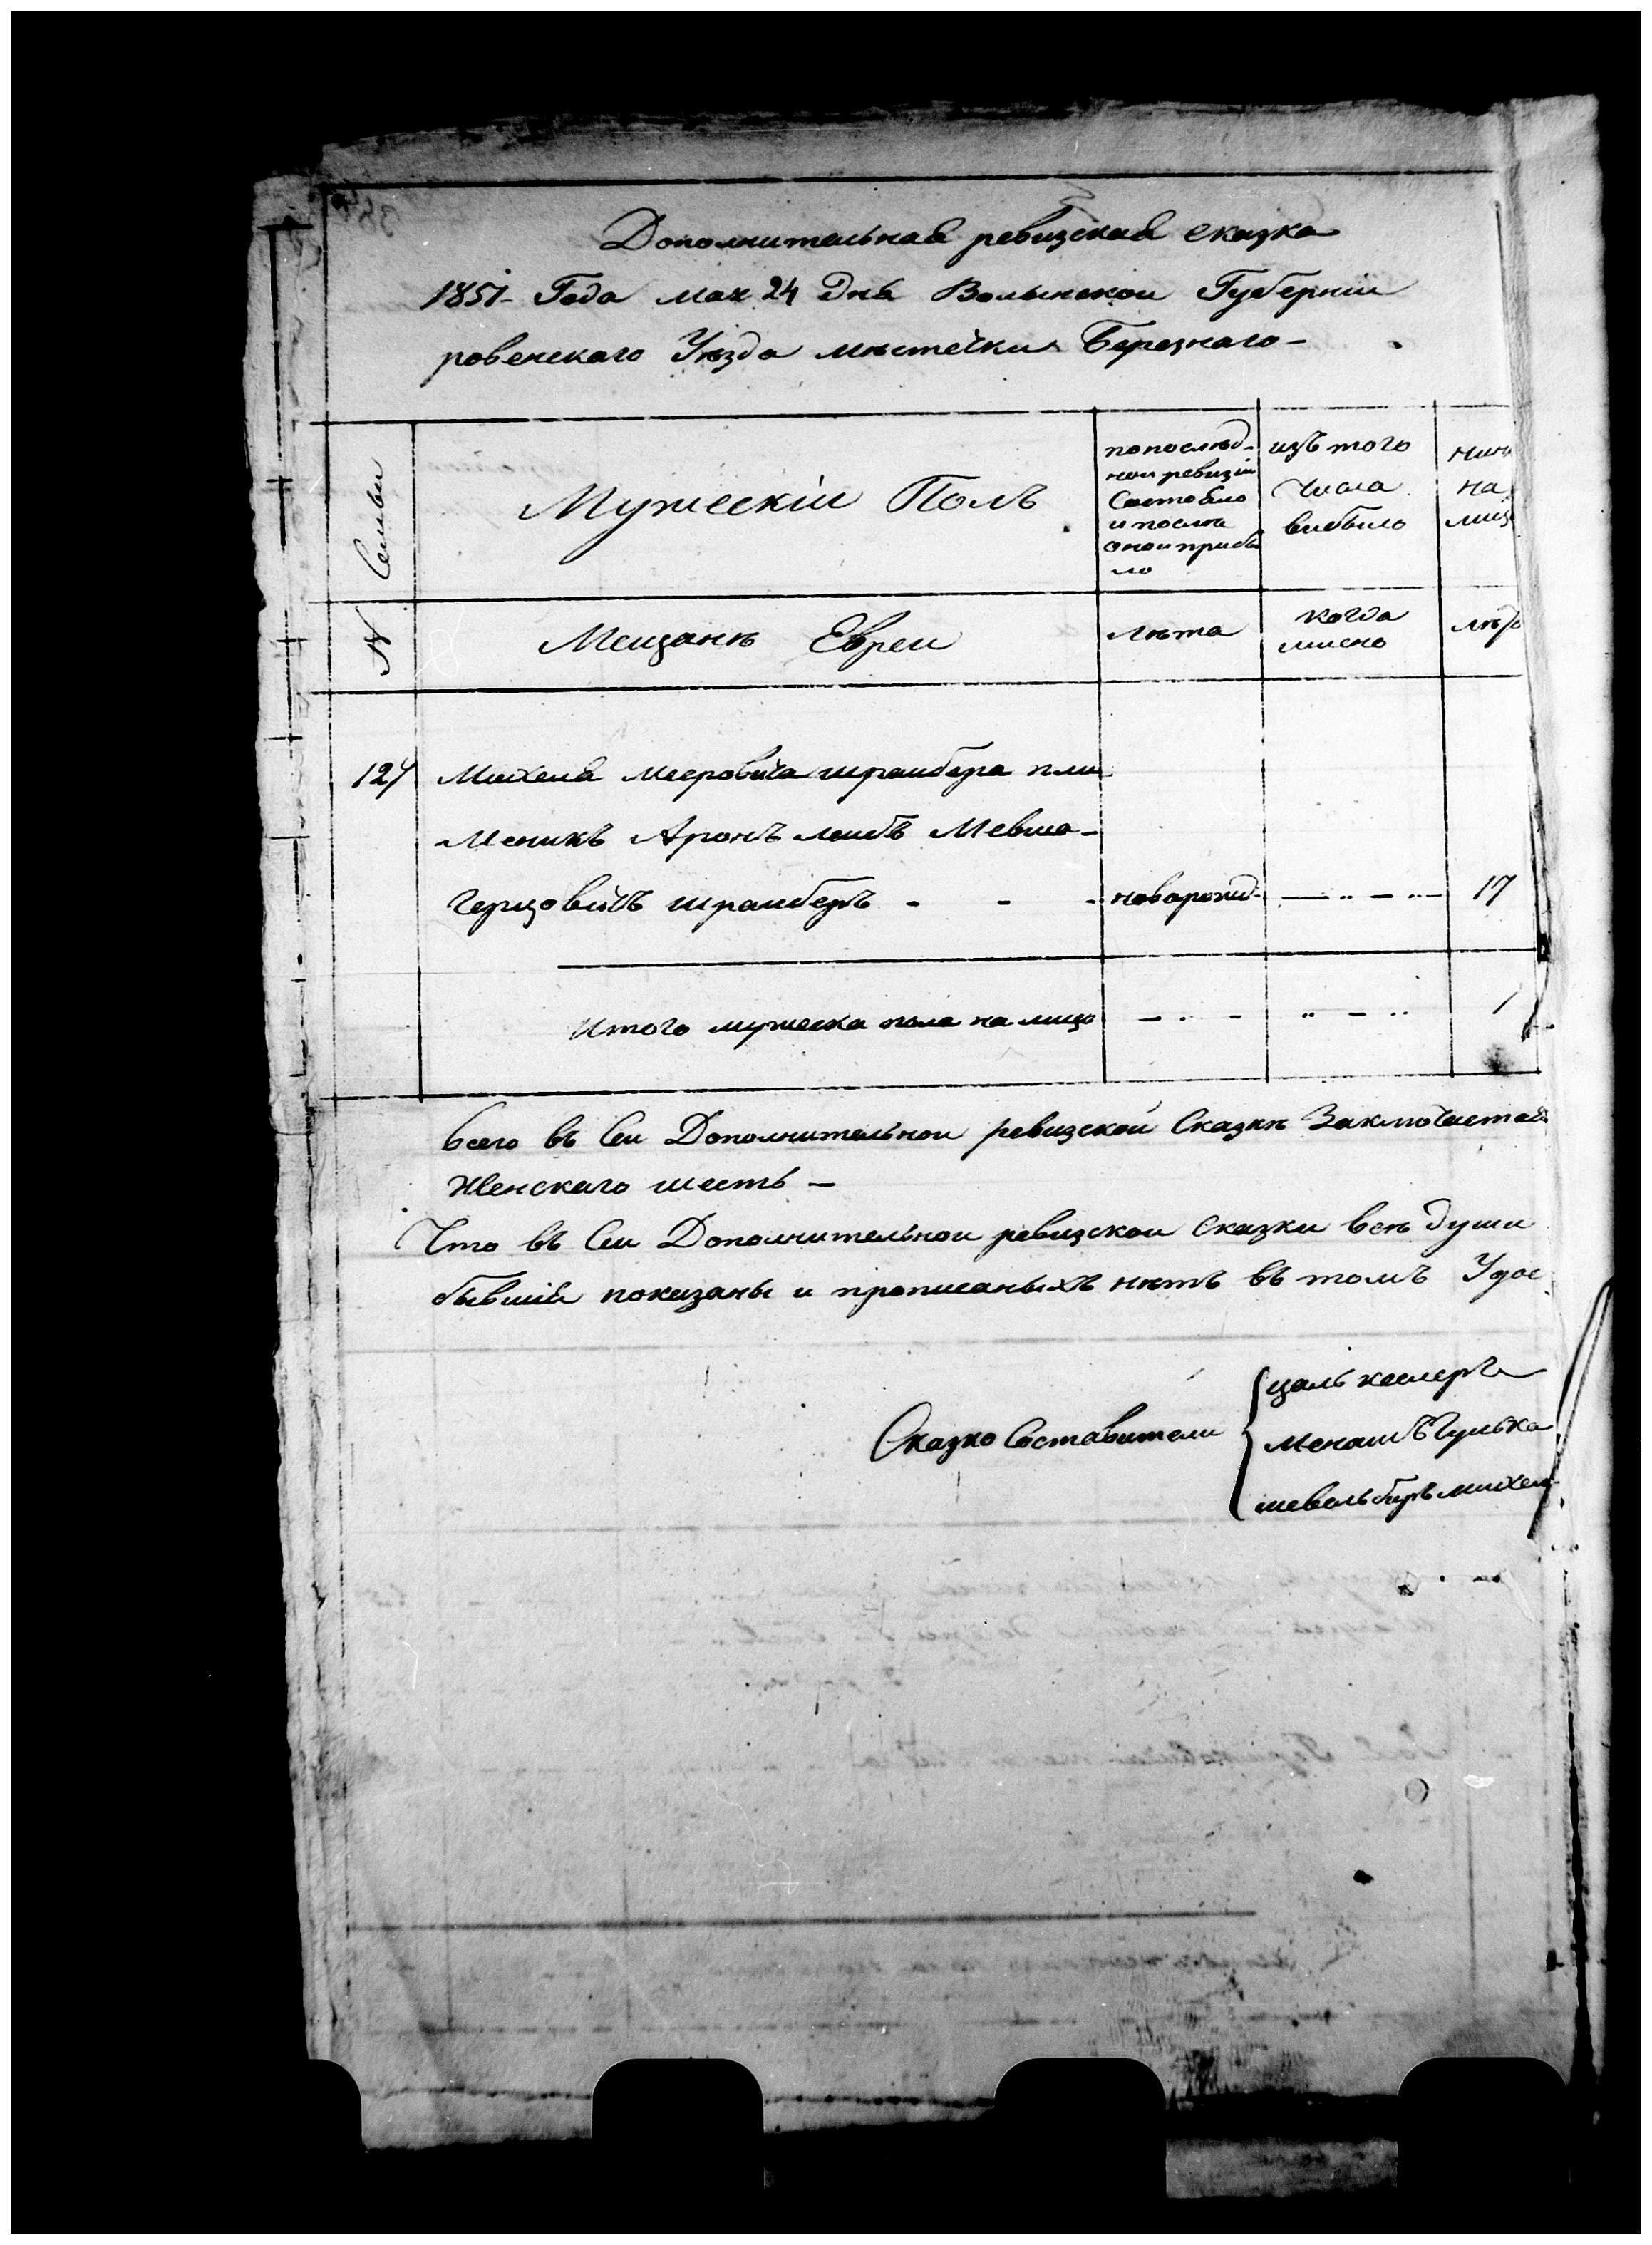 Дополнительная ревизская сказка
1851 Года мая 24 дня Волынской Губерніи
ровенскаго Уѣзда мѣстечка Березнаго
№ Семьи
Мужескій Полъ
попослѣд-
ней ревизіи
состояло
и после
оной прибы
ло
изъ того
числа
выбыло
нынѣ
на
лиц
Мещанѣ Евреи
лѣта
когда
именно
лѣта
124
Михеля Мееровича шрайбера пле
меникъ Аронъ лейбъ Мевша-
герцовичъ шрайберъ - - - новорожд. 17
Итого мужеска пола на лицо 1
Всего въ сей Дополнительной ревизской Сказкѣ Заключается
Женскаго шесть -
Что въ сей Дополнительной ревизской сказки всѣ души
бывшія показаны и прописаныхъ нѣтъ въ томъ Удос
Сказко составители
цаль
Менашъ Гулька
шевель беръ михел